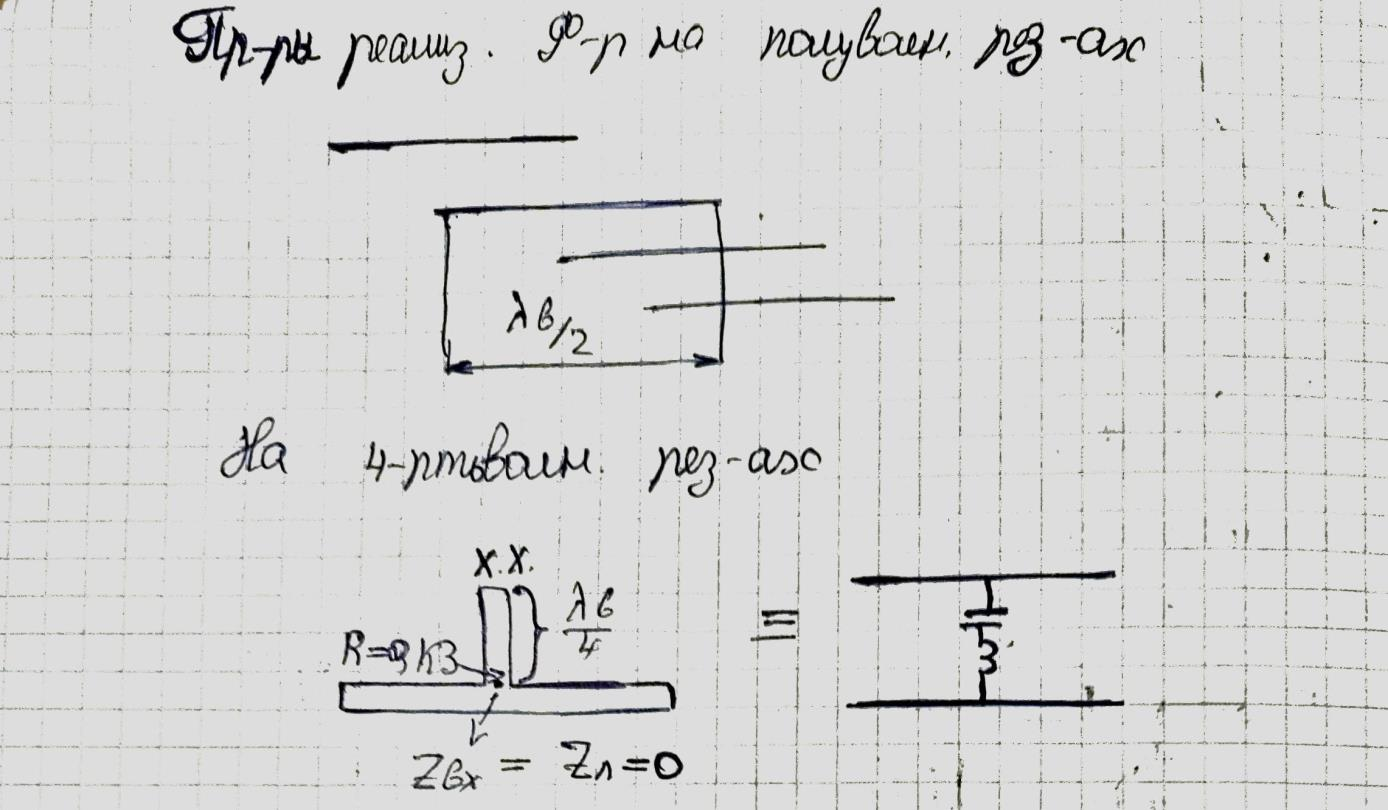 Пр-ры реализ. Ф-р на полуволн. рез-ах
λв/2
На 4-ртьволн. рез-ах
Х.Х.
λв/4
R=0 КЗ
≡
Zвх = Zл=0